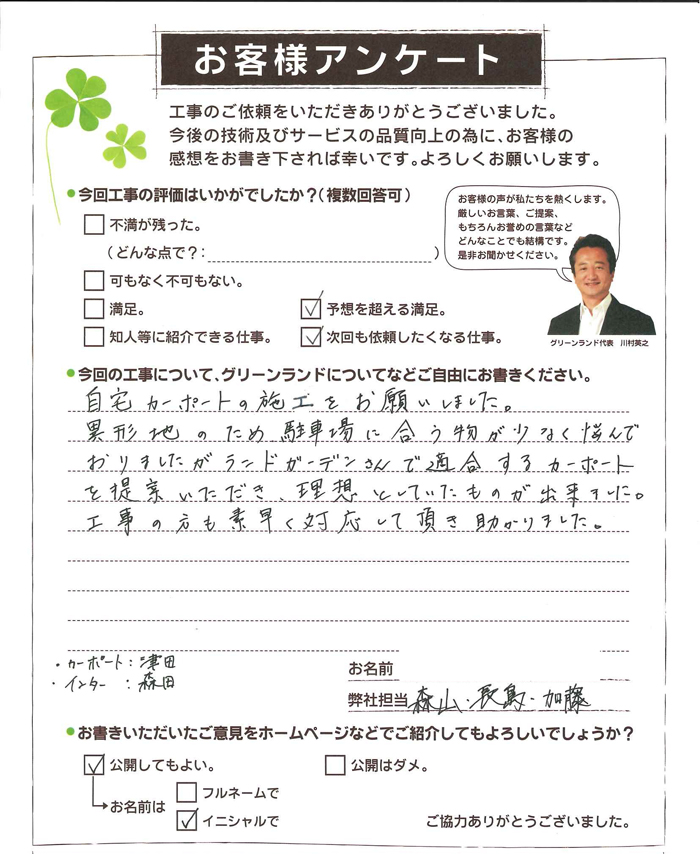 お客様アンケート
工事のご依頼をいただきありがとうございました。
今後の技術及びサービスの品質向上の為に、お客様の
感想をお書き下されば幸いです。よろしくお願いします。
●今回工事の評価はいかがでしたか?(複数回答可)
お客様の声が私たちを熱くします。
厳しいお言葉、ご提案、
もちろんお誉めの言葉など
どんなことでも結構です。
是非お聞かせください。
グリーンランド代表 川村英之
不満が残った。
(どんな点で?: )
可もなく不可もない。
満足。 ✓予想を超える満足。
知人等に紹介できる仕事。 ✓次回も依頼したくなる仕事。
●今回の工事について、グリーンランドについてなどご自由にお書きください。
自宅カーポートの施工をお願いしました。
異形地のため駐車場に合う物が少なく悩んで
おりましたがランドガーデンさんで適合するカーポート
を提案いただき、理想としていたものが出来ました。
工事の方も素早く対応して頂き助かりました。
・カーポート:津田
・インター:森田
お名前
弊社担当 森山・長島・加藤
●お書きいただいたご意見をホームページなどでご紹介してもよろしいでしょうか?
✓公開してもよい。 公開はダメ。
お名前は フルネームで
✓イニシャルで
ご協力ありがとうございました。